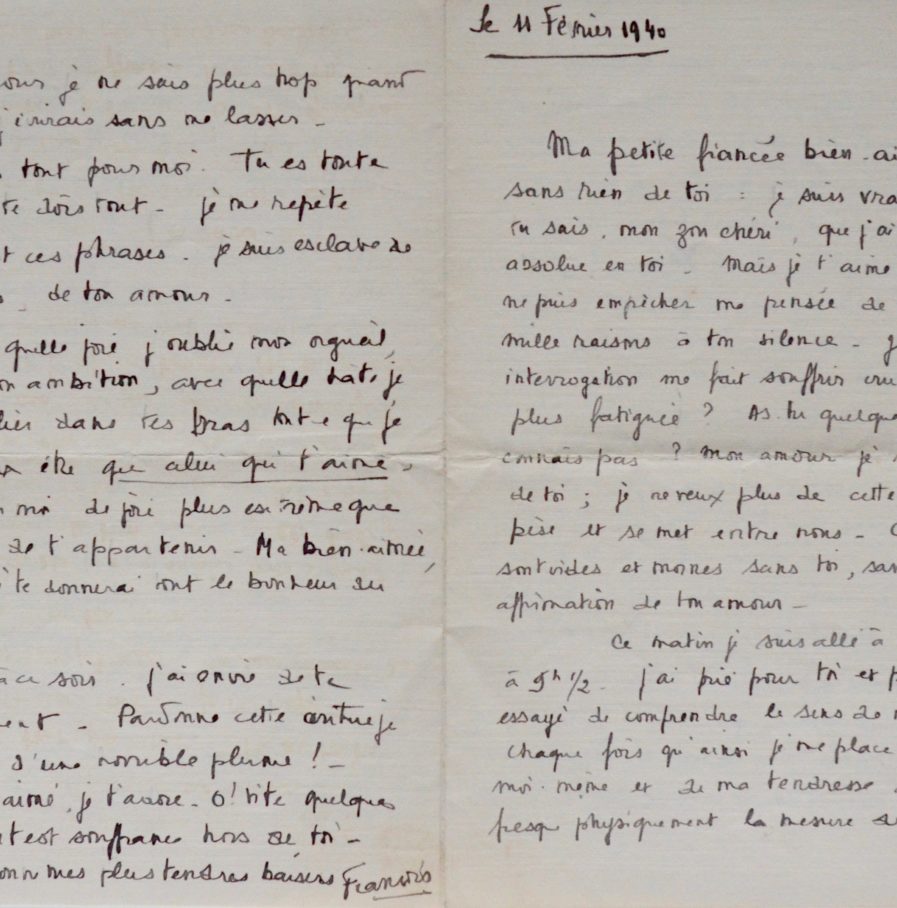 Le 11 Février 1940
Ma petite fiancée bien-ai
sans rien de toi : je suis vra
tu sais, mon zon chéri, que j'ai
absolue en toi - Mais je t'aime
ne puis empêcher ma pensée de
mille raisons à ton silence -
interrogation me fait souffrir cru
plus fatiguée ? As-tu quelque
connais pas ? Mon amour je
de toi ; je ne veux plus de cette
pèse et se met entre nous -
sont vides et mornes sans toi, san
affirmation de ton amour -
Ce matin je suis allé à
à 9h 1/2 - j'ai prié pour toi et p
essayé de comprendre le sens de
chaque fois qu'ainsi je me place
moi-même et de ma tendresse
presque physiquement la mesure d
je ne sais plus trop quand
sans me lasser -
tout pour moi. Tu es toute
te dois tout - je me répète
t ces phrases - je suis esclave de
de ton amour -
quelle joie j'oublie mon orgueil,
on ambition, avec quelle hâte je
dans tes bras tout ce que je
être que celui qui t'aime.
moi de joie plus extrême que
de t'appartenir - Ma bien-aimée,
te donnerai tout le bonheur du
ce soir. j'ai envie de te
ent - Pardonne cette écriture je
d'une horrible plume ! -
aimé, je t'adore - O ! vite quelques
t est souffrance hors de toi -
mes plus tendres baisers François